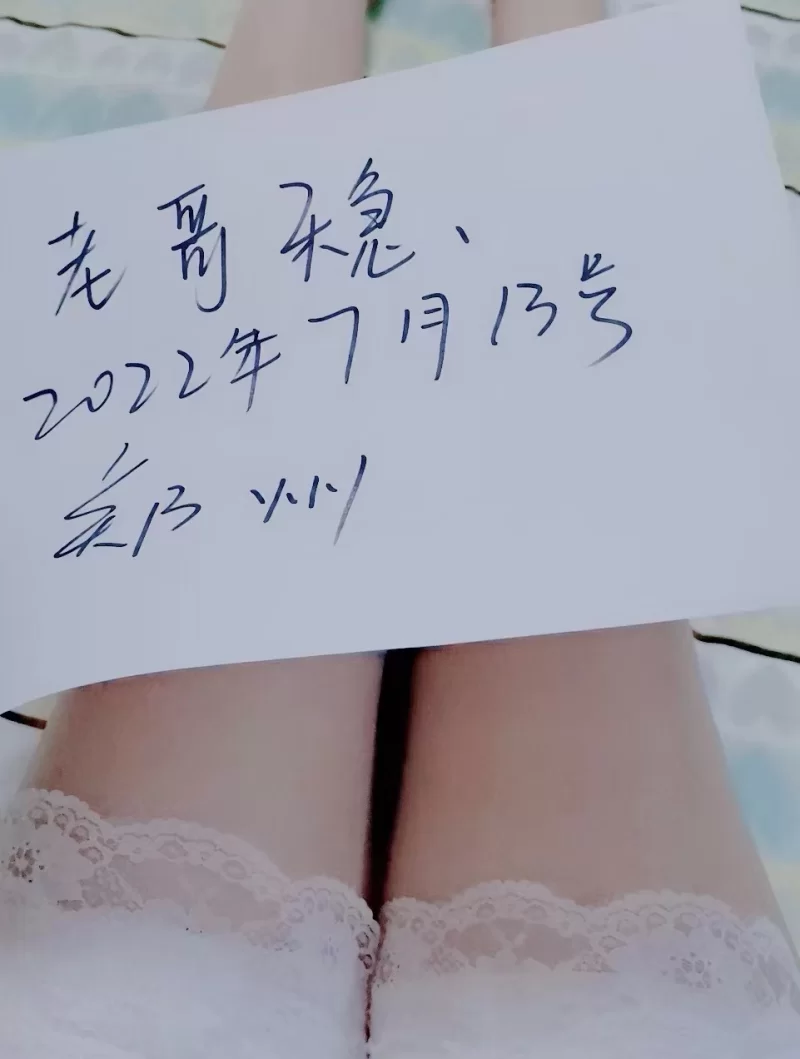 老哥稳、
2022年7月13号
郑州